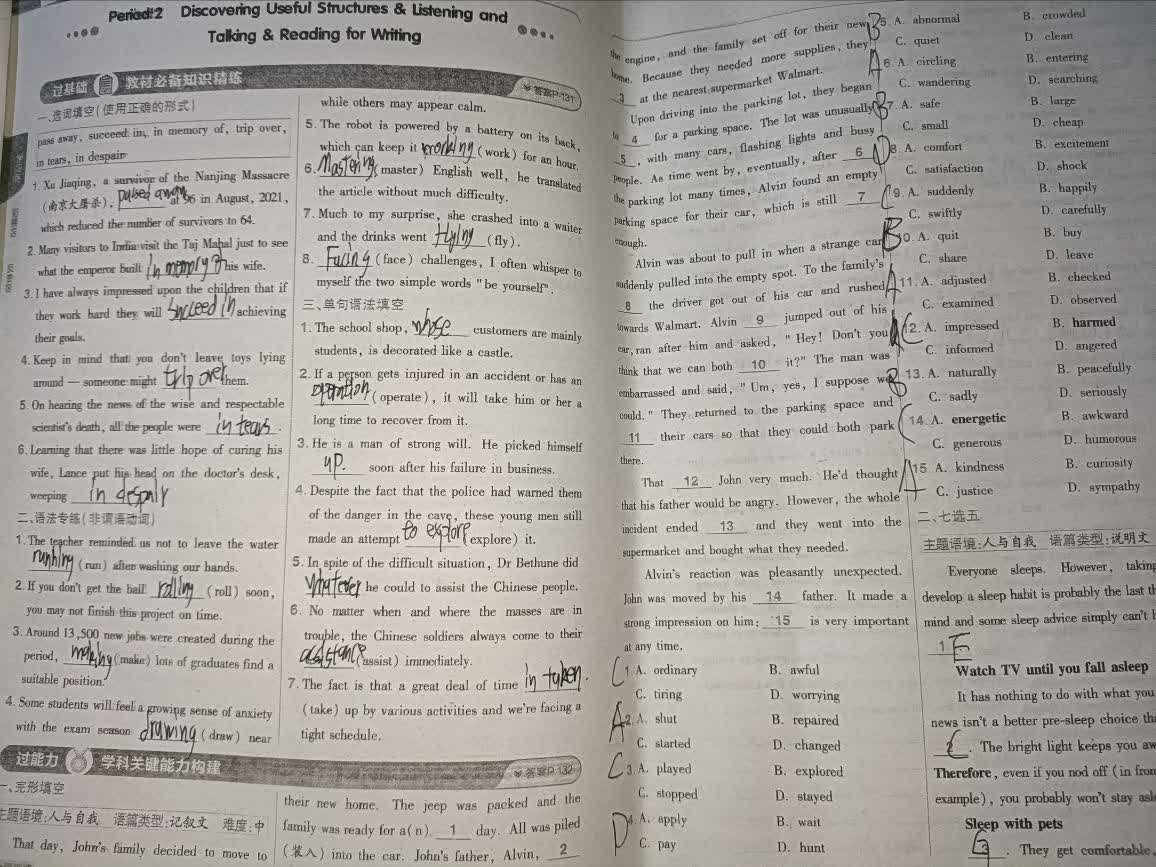 Period 2 Discovering Useful Structures & Listening and
Talking & Reading for Writing
过基础 教材必备知识精练 答案P.131
一、选词填空(使用正确的形式)
pass away, succeed in, in memory of, trip over,
in tears, in despair
1. Xu Jiaqing, a survivor of the Nanjing Massacre
(南京大屠杀), passed away at 96 in August, 2021,
which reduced the number of survivors to 64.
2. Many visitors to India visit the Taj Mahal just to see
what the emperor built in memory of his wife.
3. I have always impressed upon the children that if
they work hard they will succeed in achieving
their goals.
4. Keep in mind that you don't leave toys lying
around — someone might trip over them.
5. On hearing the news of the wise and respectable
scientist's death, all the people were in tears.
6. Learning that there was little hope of curing his
wife, Lance put his head on the doctor's desk,
weeping in despair
二、语法专练(非谓语动词)
1. The teacher reminded us not to leave the water
running (run) after washing our hands.
2. If you don't get the ball rolling (roll) soon,
you may not finish this project on time.
3. Around 13,500 new jobs were created during the
period, making (make) lots of graduates find a
suitable position.
4. Some students will feel a growing sense of anxiety
with the exam season drawing (draw) near
while others may appear calm.
5. The robot is powered by a battery on its back,
which can keep it working (work) for an hour.
6. Mastering (master) English well, he translated
the article without much difficulty.
7. Much to my surprise, she crashed into a waiter
and the drinks went flying (fly).
8. Facing (face) challenges, I often whisper to
myself the two simple words "be yourself".
三、单句语法填空
1. The school shop, whose customers are mainly
students, is decorated like a castle.
2. If a person gets injured in an accident or has an
operation (operate), it will take him or her a
long time to recover from it.
3. He is a man of strong will. He picked himself
up. soon after his failure in business.
4. Despite the fact that the police had warned them
of the danger in the cave, these young men still
made an attempt to explore (explore) it.
5. In spite of the difficult situation, Dr Bethune did
whatever he could to assist the Chinese people.
6. No matter when and where the masses are in
trouble, the Chinese soldiers always come to their
assistance (assist) immediately.
7. The fact is that a great deal of time in taken.
(take) up by various activities and we're facing a
tight schedule.
过能力 学科关键能力构建 答案P.132
一、完形填空
主题语境:人与自我 语篇类型:记叙文 难度:中
That day, John's family decided to move to
their new home. The jeep was packed and the
family was ready for a(n) 1 day. All was piled
(装入) into the car. John's father, Alvin, 2
the engine, and the family set off for their new
home. Because they needed more supplies, they
3 at the nearest supermarket Walmart.
Upon driving into the parking lot, they began
to 4 for a parking space. The lot was unusually
5, with many cars, flashing lights and busy
people. As time went by, eventually, after 6
the parking lot many times, Alvin found an empty
parking space for their car, which is still 7
enough.
Alvin was about to pull in when a strange car
suddenly pulled into the empty spot. To the family's
8 the driver got out of his car and rushed
towards Walmart. Alvin 9 jumped out of his
car, ran after him and asked, "Hey! Don't you
think that we can both 10 it?" The man was
embarrassed and said, "Um, yes, I suppose we
could." They returned to the parking space and
11 their cars so that they could both park
there.
That 12 John very much. He'd thought
that his father would be angry. However, the whole
incident ended 13 and they went into the
supermarket and bought what they needed.
Alvin's reaction was pleasantly unexpected.
John was moved by his 14 father. It made a
strong impression on him: 15 is very important
at any time.
C 1. A. ordinary B. awful
C. tiring D. worrying
A 2. A. shut B. repaired
C. started D. changed
C 3. A. played B. explored
C. stopped D. stayed
D 4. A. apply B. wait
C. pay D. hunt
B 5. A. abnormal B. crowded
C. quiet D. clean
A 6. A. circling B. entering
C. wandering D. searching
B 7. A. safe B. large
C. small D. cheap
D 8. A. comfort B. excitement
C. satisfaction D. shock
C 9. A. suddenly B. happily
C. swiftly D. carefully
B 10. A. quit B. buy
C. share D. leave
A 11. A. adjusted B. checked
C. examined D. observed
C 12. A. impressed B. harmed
C. informed D. angered
B 13. A. naturally B. peacefully
C. sadly D. seriously
C 14. A. energetic B. awkward
C. generous D. humorous
A 15. A. kindness B. curiosity
C. justice D. sympathy
二、七选五
主题语境:人与自我 语篇类型:说明文
Everyone sleeps. However, taking
develop a sleep habit is probably the last th
mind and some sleep advice simply can't b
1 E
Watch TV until you fall asleep
It has nothing to do with what you
news isn't a better pre-sleep choice tha
2. The bright light keeps you aw
Therefore, even if you nod off (in fron
example), you probably won't stay asle
Sleep with pets
. They get comfortable,